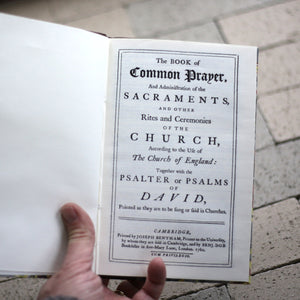 The BOOK of
Common Prayer,
And Administration of the
SACRAMENTS,
AND OTHER
Rites and Ceremonies
OF THE
CHURCH,
According to the Use of
The Church of England:
Together with the
PSALTER or PSALMS
OF
DAVID,
Pointed as they are to be sung or said in Churches.
CAMBRIDGE,
Printed by JOSEPH BENTHAM, Printer to the University,
by whom they are sold in Cambridge, and by BENJ. DOD
Bookseller in Ave-Mary Lane, London. 1760.
CUM PRIVILEGIO.